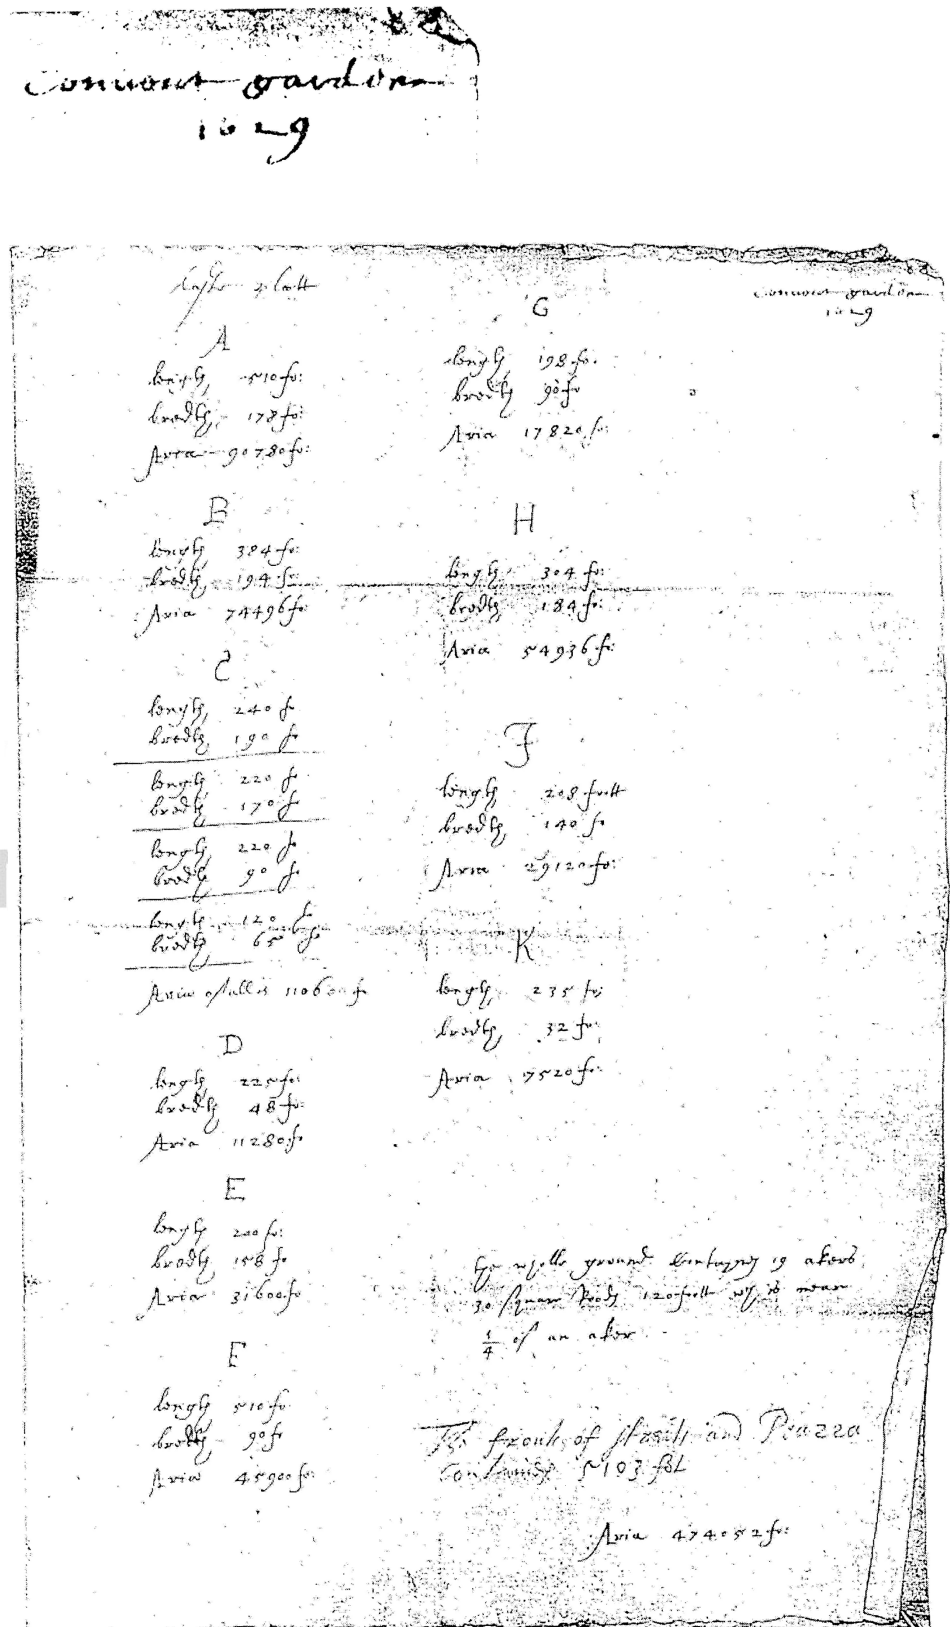 Convent garden
1629
plott
Convent garden
1629
A
length 510 fo:
bredth 178 fo:
Aria 90780 fo:
B
length 384 fo:
bredth 194 fo
Aria 74496 fo:
C
length 240 fo
bredth 190 fo
length 220 fo
bredth 170 fo
length 220 fo
bredth 90 fo
length 120 fo
bredth 65 fo
Aria of all is 110600 fo
D
length 225 fo:
bredth 48 fo:
Aria 11280 fo
E
length 200 fo:
bredth 158 fo
Aria 31600 fo
F
length 510 fo:
bredth 90 fo
Aria 45900 fo:
G
length 198 fo.
bredth 90 fo
Aria 17820 fo:
H
length 304 fo:
bredth 184 fo:
Aria 54936 fo:
J
length 208 foott
bredth 140 fo
Aria 29120 fo:
K
length 235 fo:
bredth 32 fo:
Aria 7520 fo:
the wholle ground 19 akers
30 square Rodes 120 foott is near
1/4 of an aker
The front of streets and Peazza
Containes 5103 fot
Aria 474052 fo: